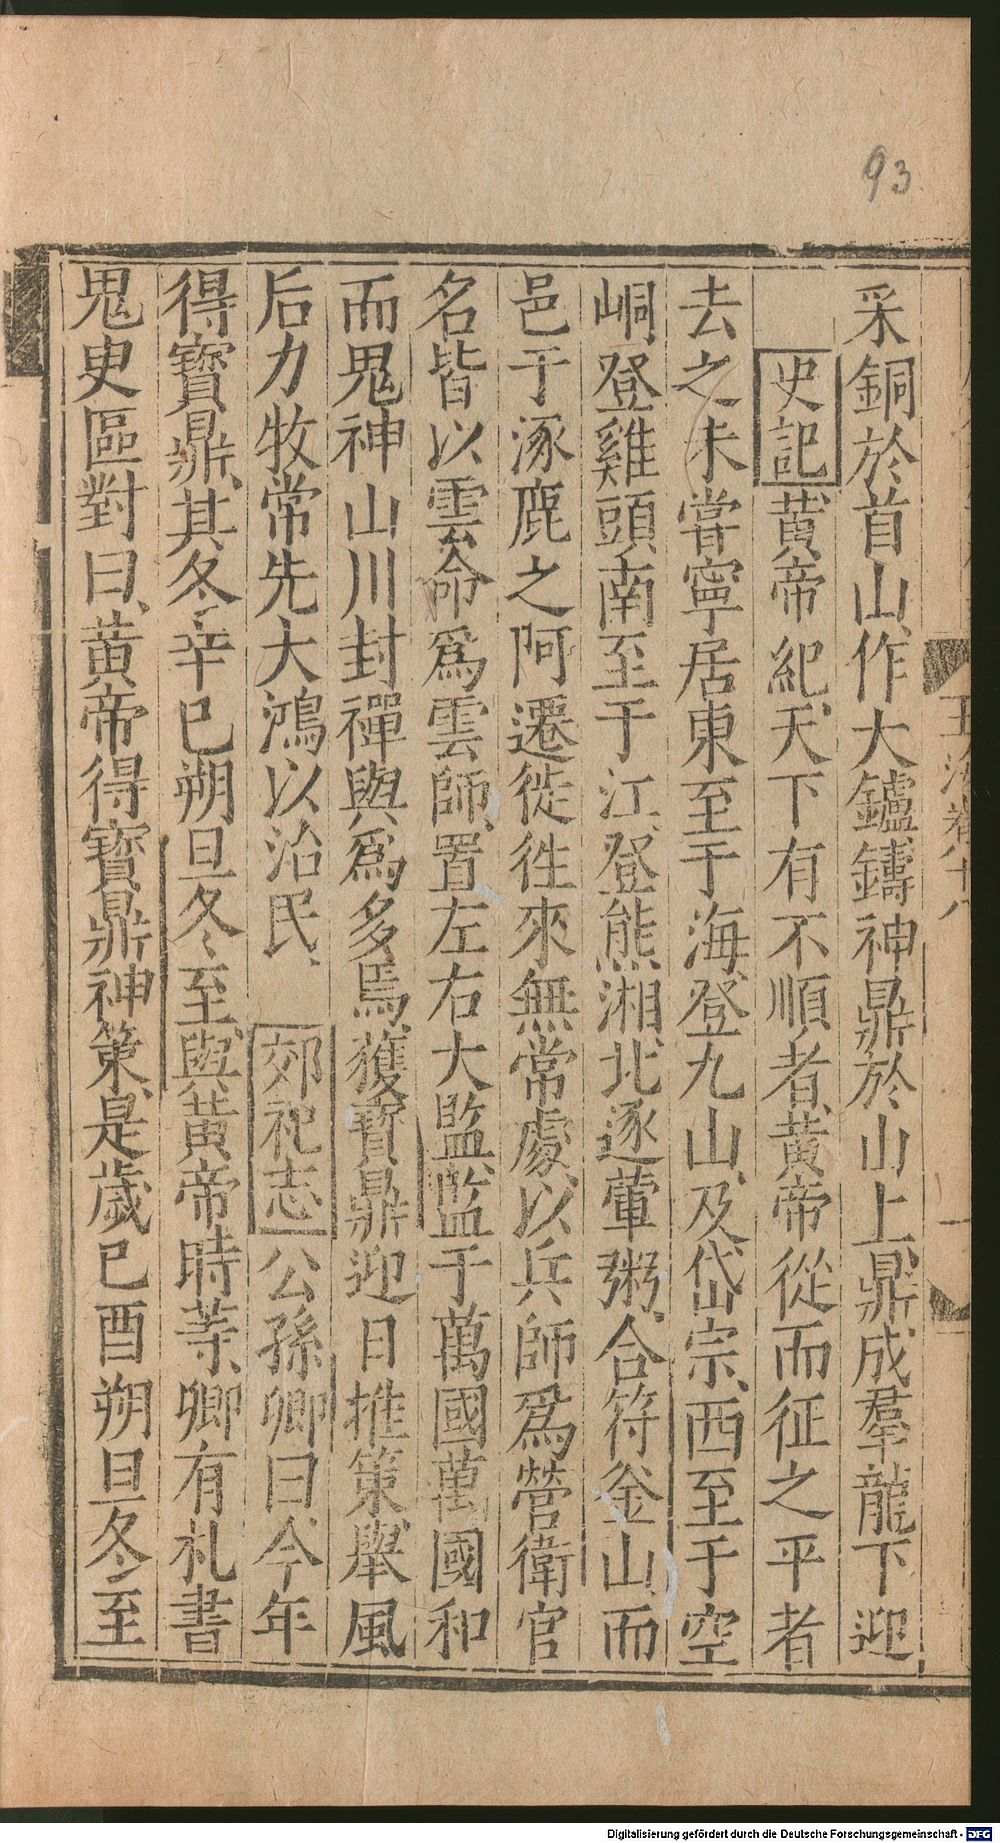 93
玉海卷八十八
一
采銅於首山、作大鑪鑄神鼎於山上、鼎成羣龍下迎
史記黃帝紀、天下有不順者、黃帝從而征之平者
去之未甞寧居東至于海、登九山、及岱宗、西至于空
峒登雞頭南至于江、登熊湘、北逐葷粥、合符釜山、而
邑于涿鹿之阿遷徙徃來無常處、以兵師爲營衛官
名皆以雲命爲雲師、置左右大監、監于萬國萬國和
而鬼神山川封禪與爲多焉、獲寶鼎迎日推策、舉風
后力牧常先大鴻以治民、郊祀志公孫卿曰、今年
得寶鼎、其冬辛巳朔旦冬至、與黃帝時等、卿有札書
鬼臾區對曰、黃帝得寶鼎神策、是歲己酉朔旦冬至
Digitalisierung gefördert durch die Deutsche Forschungsgemeinschaft - DFG